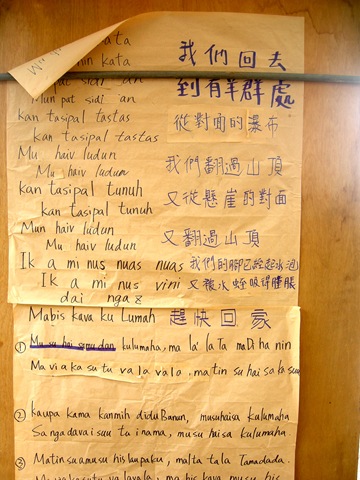 ata 我們回去
nin kata
pat sidi an 到有羊群處
Mun pat sidi an
kan tasipal tastas 從對面的瀑布
kan tasipal tastas
Mu haiv ludun
Mu haiv ludun 我們翻過山頂
kan tasipal tunuh 又從懸崖的對面
kan tasipal tunuh
Mun haiv ludun 又翻過山頂
Mu haiv ludun
Ik a mi nus nuas nuas 我們的腳已經起水泡
Ik a mi nus vini 又被水蛭吸得腫脹
dai ngaz
Mabis kava ku Lumah 趕快回家
① Mu su hai kulumaha, ma la' la Ta ma Di ha nin
Ma vi a ka su tu va la va la, ma tin su hai sa ka su
② kaupa kama kanmih didu Bunun, musuhaisa kulumaha
Sa ng da vai su u tu i nama, musu haisa kulumaha
③ Matin su amusu his laupaku, malta tala Tamadada.